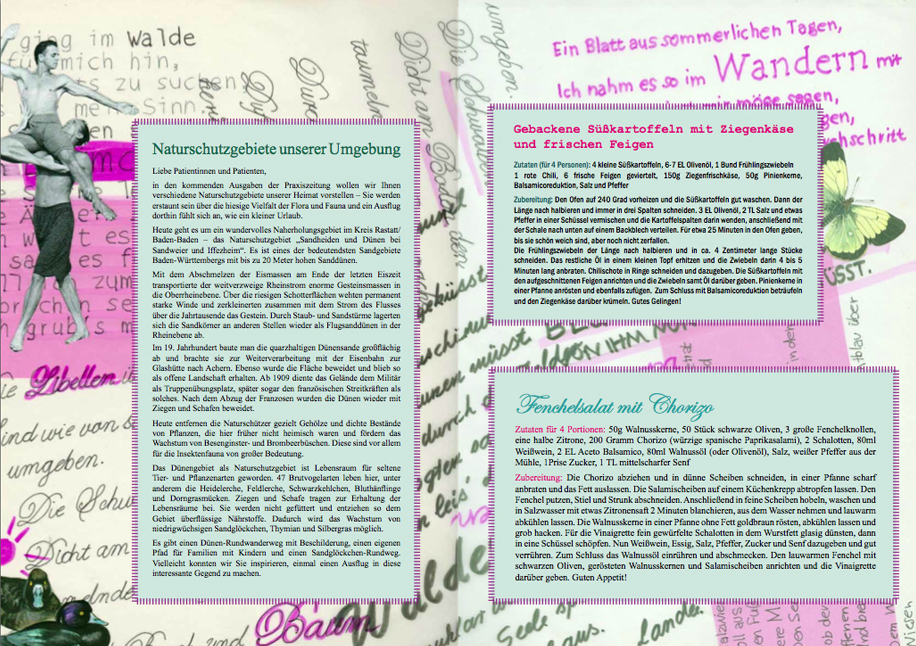 ging im Walde
für mich hin,
zu suchen
Sinn.
Libellen
umgeben.
Die
Dicht am
Baum
Walde
Naturschutzgebiete unserer Umgebung
Liebe Patientinnen und Patienten,
in den kommenden Ausgaben der Praxiszeitung wollen wir Ihnen
verschiedene Naturschutzgebiete unserer Heimat vorstellen – Sie werden
erstaunt sein über die hiesige Vielfalt der Flora und Fauna und ein Ausflug
dorthin fühlt sich an, wie ein kleiner Urlaub.
Heute geht es um ein wundervolles Naherholungsgebiet im Kreis Rastatt/
Baden-Baden – das Naturschutzgebiet „Sandheiden und Dünen bei
Sandweier und Iffezheim“. Es ist eines der bedeutendsten Sandgebiete
Baden-Württembergs mit bis zu 20 Meter hohen Sanddünen.
Mit dem Abschmelzen der Eismassen am Ende der letzten Eiszeit
transportierte der weitverzweige Rheinstrom enorme Gesteinsmassen in
die Oberrheinebene. Über die riesigen Schotterflächen wehten permanent
starke Winde und zerkleinerten zusammen mit dem Strom des Flusses
über die Jahrtausende das Gestein. Durch Staub- und Sandstürme lagerten
sich die Sandkörner an anderen Stellen wieder als Flugsanddünen in der
Rheinebene ab.
Im 19. Jahrhundert baute man die quarzhaltigen Dünensande großflächig
ab und brachte sie zur Weiterverarbeitung mit der Eisenbahn zur
Glashütte nach Achern. Ebenso wurde die Fläche beweidet und blieb so
als offene Landschaft erhalten. Ab 1909 diente das Gelände dem Militär
als Truppenübungsplatz, später sogar den französischen Streitkräften als
solches. Nach dem Abzug der Franzosen wurden die Dünen wieder mit
Ziegen und Schafen beweidet.
Heute entfernen die Naturschützer gezielt Gehölze und dichte Bestände
von Pflanzen, die hier früher nicht heimisch waren und fördern das
Wachstum von Besenginster- und Brombeerbüschen. Diese sind vor allem
für die Insektenfauna von großer Bedeutung.
Das Dünengebiet als Naturschutzgebiet ist Lebensraum für seltene
Tier- und Pflanzenarten geworden. 47 Brutvogelarten leben hier, unter
anderem die Heidelerche, Feldlerche, Schwarzkehlchen, Bluthänflinge
und Dorngrasmücken. Ziegen und Schafe tragen zur Erhaltung der
Lebensräume bei. Sie werden nicht gefüttert und entziehen so dem
Gebiet überflüssige Nährstoffe. Dadurch wird das Wachstum von
niedrigwüchsigen Sandglöckchen, Thymian und Silbergras möglich.
Es gibt einen Dünen-Rundwanderweg mit Beschilderung, einen eigenen
Pfad für Familien mit Kindern und einen Sandglöckchen-Rundweg.
Vielleicht konnten wir Sie inspirieren, einmal einen Ausflug in diese
interessante Gegend zu machen.
Ein Blatt aus sommerlichen Tagen,
Ich nahm es so im Wandern mit
Gebackene Süßkartoffeln mit Ziegenkäse
und frischen Feigen
Zutaten (für 4 Personen): 4 kleine Süßkartoffeln, 6-7 EL Olivenöl, 1 Bund Frühlingszwiebeln
1 rote Chili, 6 frische Feigen geviertelt, 150g Ziegenfrischkäse, 50g Pinienkerne,
Balsamicoreduktion, Salz und Pfeffer
Zubereitung: Den Ofen auf 240 Grad vorheizen und die Süßkartoffeln gut waschen. Dann der
Länge nach halbieren und immer in drei Spalten schneiden. 3 EL Olivenöl, 2 TL Salz und etwas
Pfeffer in einer Schüssel vermischen und die Kartoffelspalten darin wenden, anschließend mit
der Schale nach unten auf einem Backblech verteilen. Für etwa 25 Minuten in den Ofen geben,
bis sie schön weich sind, aber noch nicht zerfallen.
Die Frühlingszwiebeln der Länge nach halbieren und in ca. 4 Zentimeter lange Stücke
schneiden. Das restliche Öl in einem kleinen Topf erhitzen und die Zwiebeln darin 4 bis 5
Minuten lang anbraten. Chilischote in Ringe schneiden und dazugeben. Die Süßkartoffeln mit
den aufgeschnittenen Feigen anrichten und die Zwiebeln samt Öl darüber geben. Pinienkerne in
einer Pfanne anrösten und ebenfalls zufügen. Zum Schluss mit Balsamicoreduktion beträufeln
und den Ziegenkäse darüber krümeln. Gutes Gelingen!
Fenchelsalat mit Chorizo
Zutaten für 4 Portionen: 50g Walnusskerne, 50 Stück schwarze Oliven, 3 große Fenchelknollen,
eine halbe Zitrone, 200 Gramm Chorizo (würzige spanische Paprikasalami), 2 Schalotten, 80ml
Weißwein, 2 EL Aceto Balsamico, 80ml Walnussöl (oder Olivenöl), Salz, weißer Pfeffer aus der
Mühle, 1Prise Zucker, 1 TL mittelscharfer Senf
Zubereitung: Die Chorizo abziehen und in dünne Scheiben schneiden, in einer Pfanne scharf
anbraten und das Fett auslassen. Die Salamischeiben auf einem Küchenkrepp abtropfen lassen. Den
Fenchel putzen, Stiel und Strunk abschneiden. Anschließend in feine Scheiben hobeln, waschen und
in Salzwasser mit etwas Zitronensaft 2 Minuten blanchieren, aus dem Wasser nehmen und lauwarm
abkühlen lassen. Die Walnusskerne in einer Pfanne ohne Fett goldbraun rösten, abkühlen lassen und
grob hacken. Für die Vinaigrette fein gewürfelte Schalotten in dem Wurstfett glasig dünsten, dann
in eine Schüssel schöpfen. Nun Weißwein, Essig, Salz, Pfeffer, Zucker und Senf dazugeben und gut
verrühren. Zum Schluss das Walnussöl einrühren und abschmecken. Den lauwarmen Fenchel mit
schwarzen Oliven, gerösteten Walnusskernen und Salamischeiben anrichten und die Vinaigrette
darüber geben. Guten Appetit!